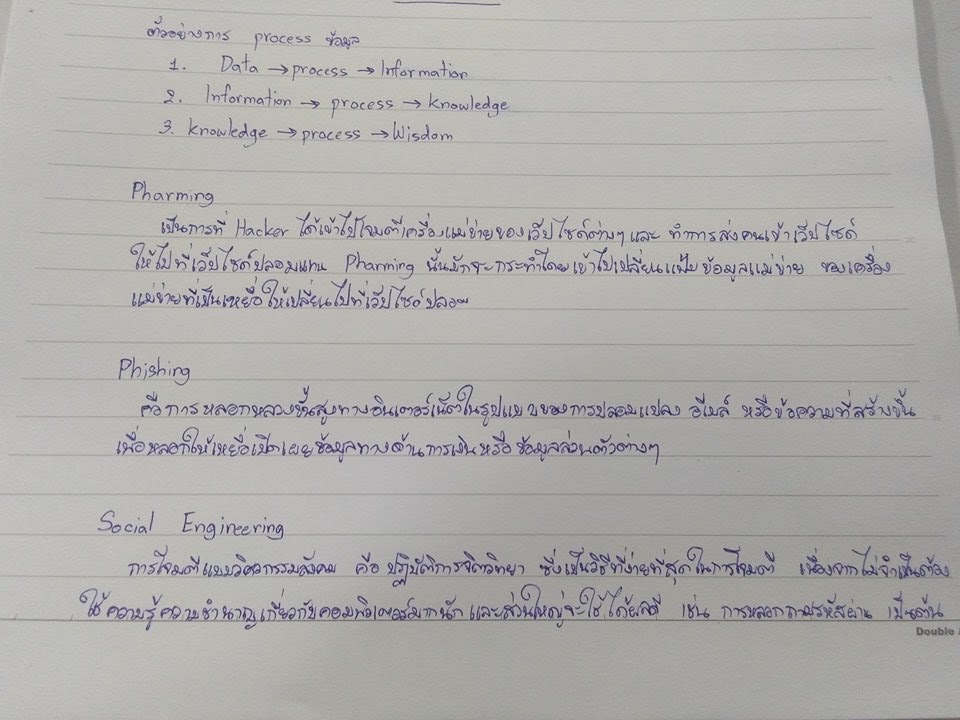 ตัวอย่างการ process ข้อมูล
1. Data → process → Information
2. Information → process → knowledge
3. knowledge → process → Wisdom
Pharming
เป็นการที่ Hacker ได้เข้าไปโจมตีเครื่องแม่ข่ายของเว็ปไซด์ต่างๆ และ ทำการส่งคนเข้าเว็ปไซด์
ให้ไปที่เว็ปไซด์ปลอมแทน Pharming นั้นมักจะกระทำโดยเข้าไปเปลี่ยนแฟ้มข้อมูลแม่ข่าย ของเครื่อง
แม่ข่ายที่เป็นเหยื่อให้เปลี่ยนไปที่เว็ปไซด์ปลอม
Phishing
คือการหลอกหลวงขั้นสูงทางอินเตอร์เน็ตในรูปแบบของการปลอมแปลง อีเมล์ หรือข้อความที่สร้างขึ้น
เพื่อหลอกให้เหยื่อเปิดเผยข้อมูลทางด้านการเงินหรือข้อมูลส่วนตัวต่างๆ
Social Engineering
การโจมตีแบบวิศวกรรมสังคม คือ ปฏิบัติการจิตวิทยา ซึ่งเป็นวิธีที่ง่ายที่สุดในการโจมตี เนื่องจากไม่จำเป็นต้อง
ใช้ความรู้ความชำนาญเกี่ยวกับคอมพิวเตอร์มากนัก และส่วนใหญ่จะใช้ได้ผลดี เช่น การหลอกถามรหัสผ่าน เป็นต้น
Double